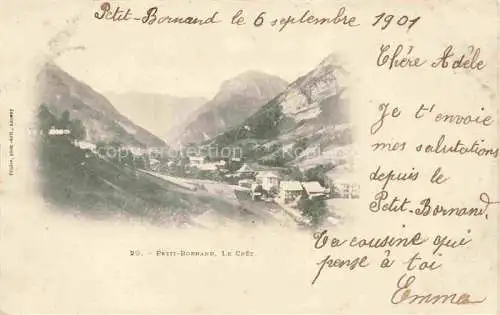 Petit-Bornand le 6 septembre 1901
Chère Adèle
Je t'envoie
mes salutations
depuis le
Petit-Bornand.
Ta cousine qui
pense à toi
Emma
20. - PETIT-BORNAND, LE CRÊT